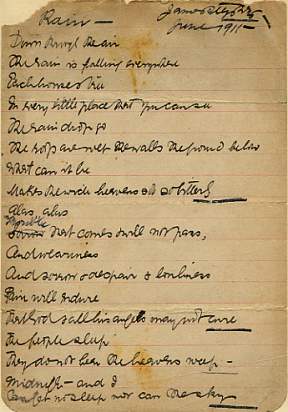 Rain —
James Stephens
June 1911 —
Down through the air
The rain is falling everywhere
Each homes tree
In every little place that you can see
The rain drops go
The roofs are wet the walls the ground below
What can it be
Makes the wide heavens so bitterly
Alas, alas
Trouble that comes & will not pass,
And weariness
And sorrow & despair & lonliness
Pain will endure
That God & all his angels may not cure
The people sleep
They do not hear the heavens weep —
Midnight — and I
Can get no sleep nor can the sky